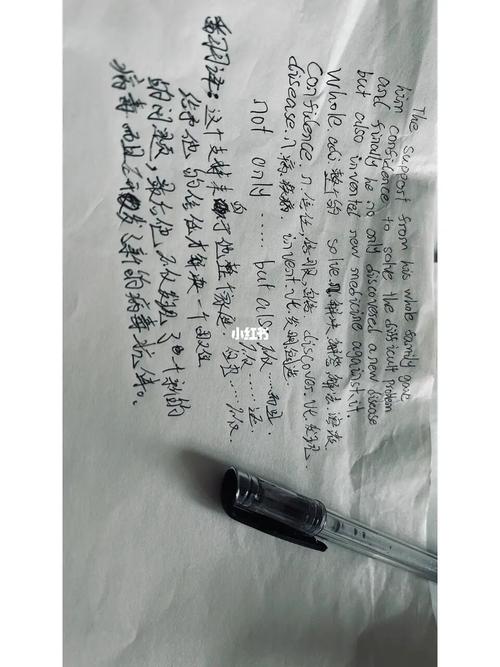 The support from his whole family gave
him confidence to solve the difficult problem
and finally he no only discovered a new disease
but also invented new medicine against it.
Whole. adj. 整个的 solve. 解决 解答 解法 溶液
Confidence n. 信任, 信心 discover. vt. 发现.
disease. n. 病, 疾病 invent. vt. 发明 创造
not only ...... but also
不仅...... 而且.
翻译: 这个支持来源于他整个家庭
给予他的信任才解决一个困难
的问题, 最后他不仅发现了一个新的
病毒 而且
新的病毒抗体。
小红书